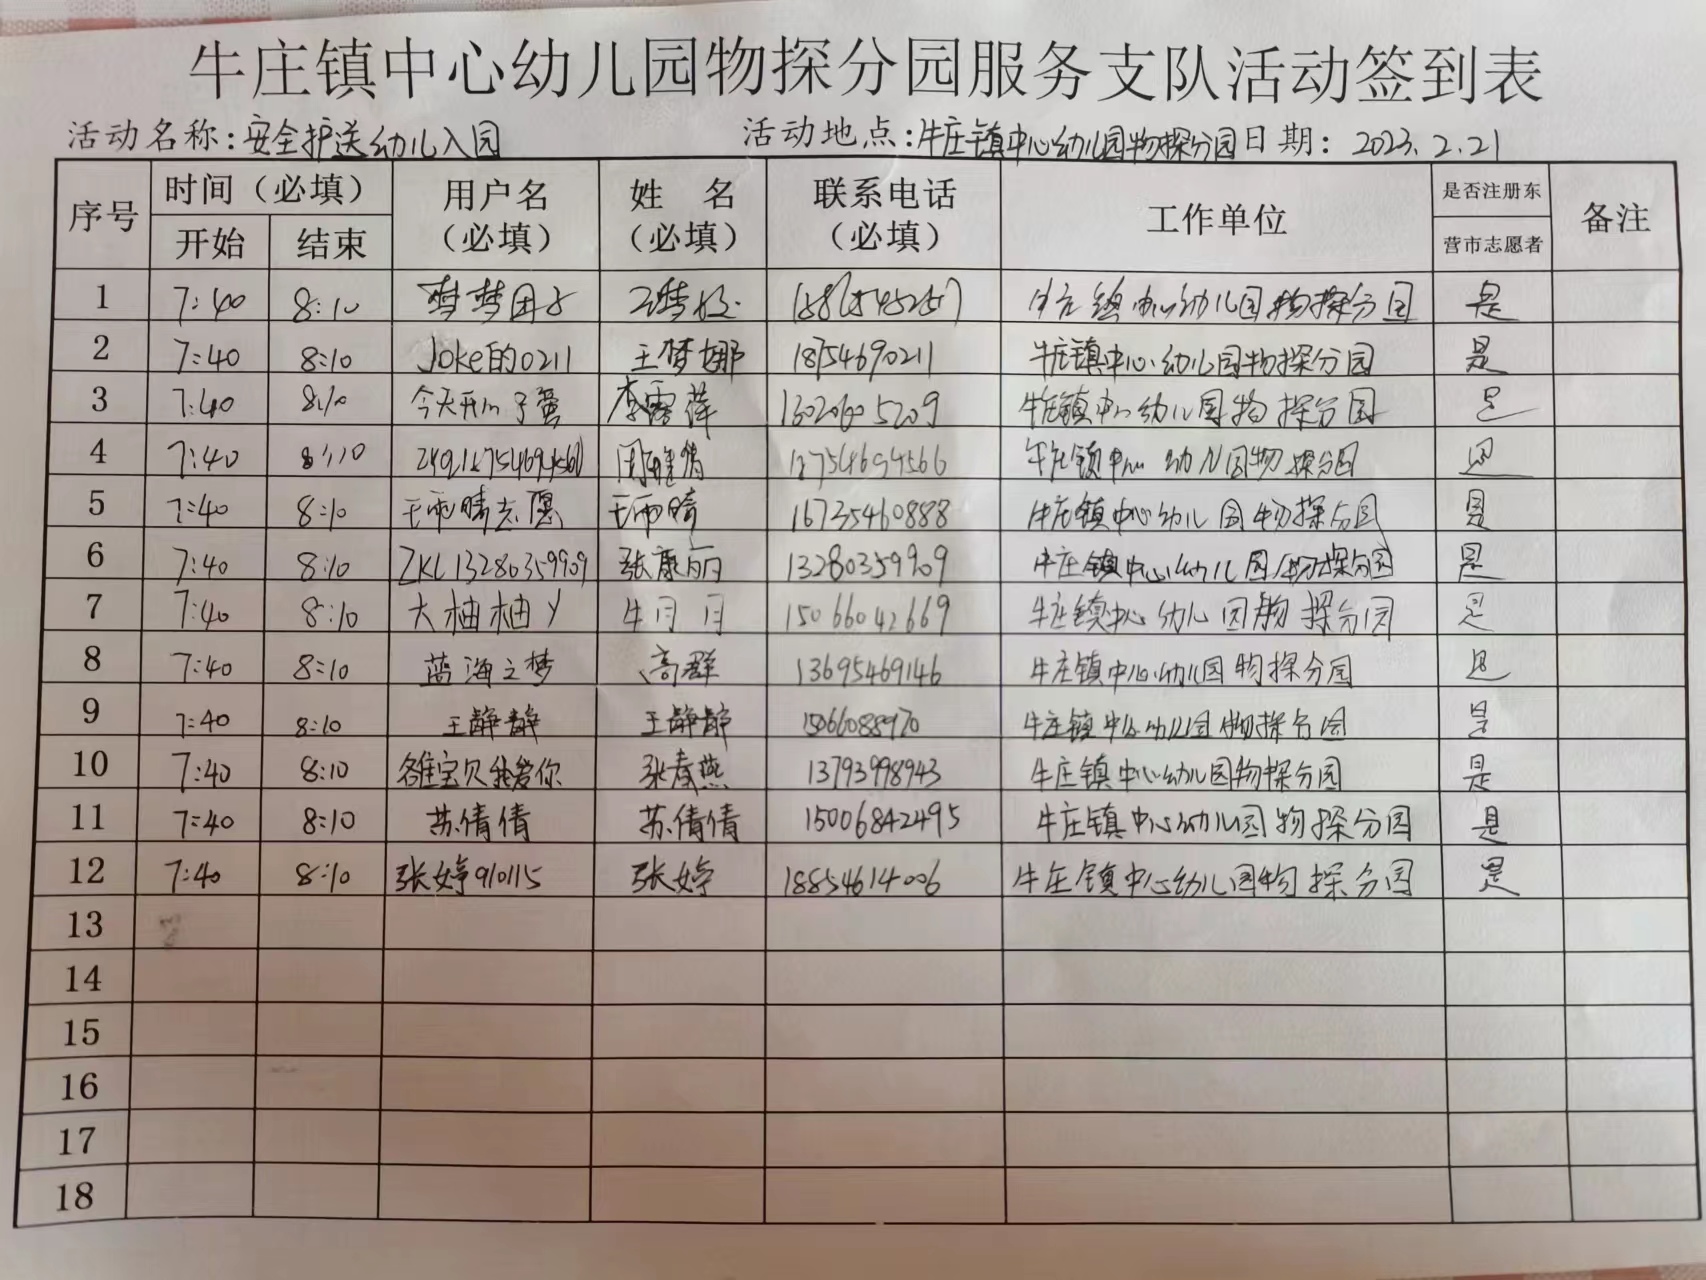 牛庄镇中心幼儿园物探分园服务支队活动签到表
活动名称:安全护送幼儿入园 活动地点:牛庄镇中心幼儿园物探分园 日期: 2023.2.21
序号 时间（必填） 用户名（必填） 姓名（必填） 联系电话（必填） 工作单位 是否注册东营市志愿者 备注
开始 结束
1 7:40 8:10 梦梦团子 牛庄镇中心幼儿园物探分园 是
2 7:40 8:10 Joke的0211 王梦娜 18754690211 牛庄镇中心幼儿园物探分园 是
3 7:40 8:10 李露萍 牛庄镇中心幼儿园物探分园 是
4 7:40 8:10 18754694566 牛庄镇中心幼儿园物探分园 是
5 7:40 8:10 王雨晴志愿 王雨晴 16735460888 牛庄镇中心幼儿园物探分园 是
6 7:40 8:10 ZKL13280359909 张康丽 13280359909 牛庄镇中心幼儿园物探分园 是
7 7:40 8:10 大柚柚丫 牛月月 15066042669 牛庄镇中心幼儿园物探分园 是
8 7:40 8:10 蓝海之梦 高群 13695469146 牛庄镇中心幼儿园物探分园 是
9 7:40 8:10 王静静 王静静 15066088970 牛庄镇中心幼儿园物探分园 是
10 7:40 8:10 宝贝我爱你 张春燕 13793998943 牛庄镇中心幼儿园物探分园 是
11 7:40 8:10 苏倩倩 苏倩倩 15006842495 牛庄镇中心幼儿园物探分园 是
12 7:40 8:10 张婷910115 张婷 18854614006 牛庄镇中心幼儿园物探分园 是
13
14
15
16
17
18